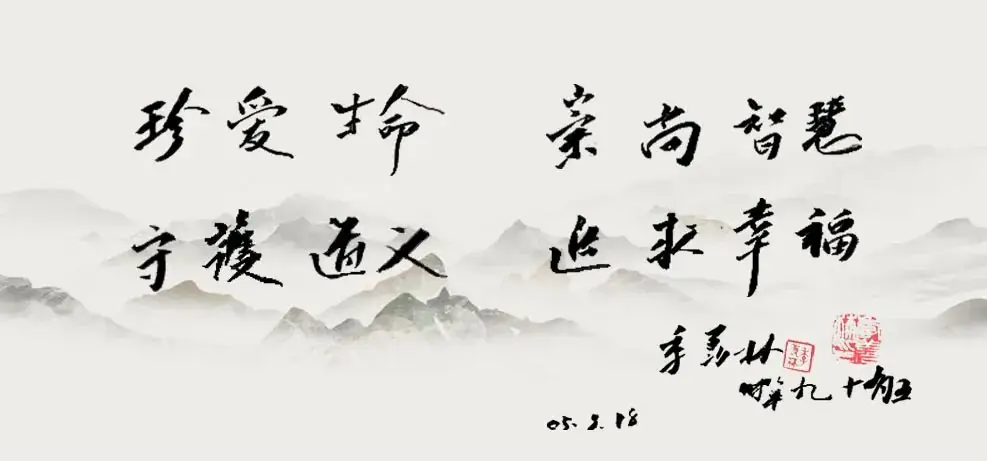 珍爱生命 崇尚智慧
守護道义 追求幸福
季羡林
時年九十有五
05.9.18
季羡林